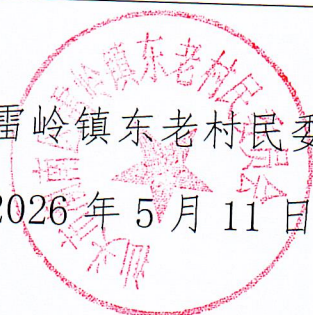 雷岭镇东老村民委
2026 年 5 月 11 日
汕头市潮南区雷岭镇东老村民委员会